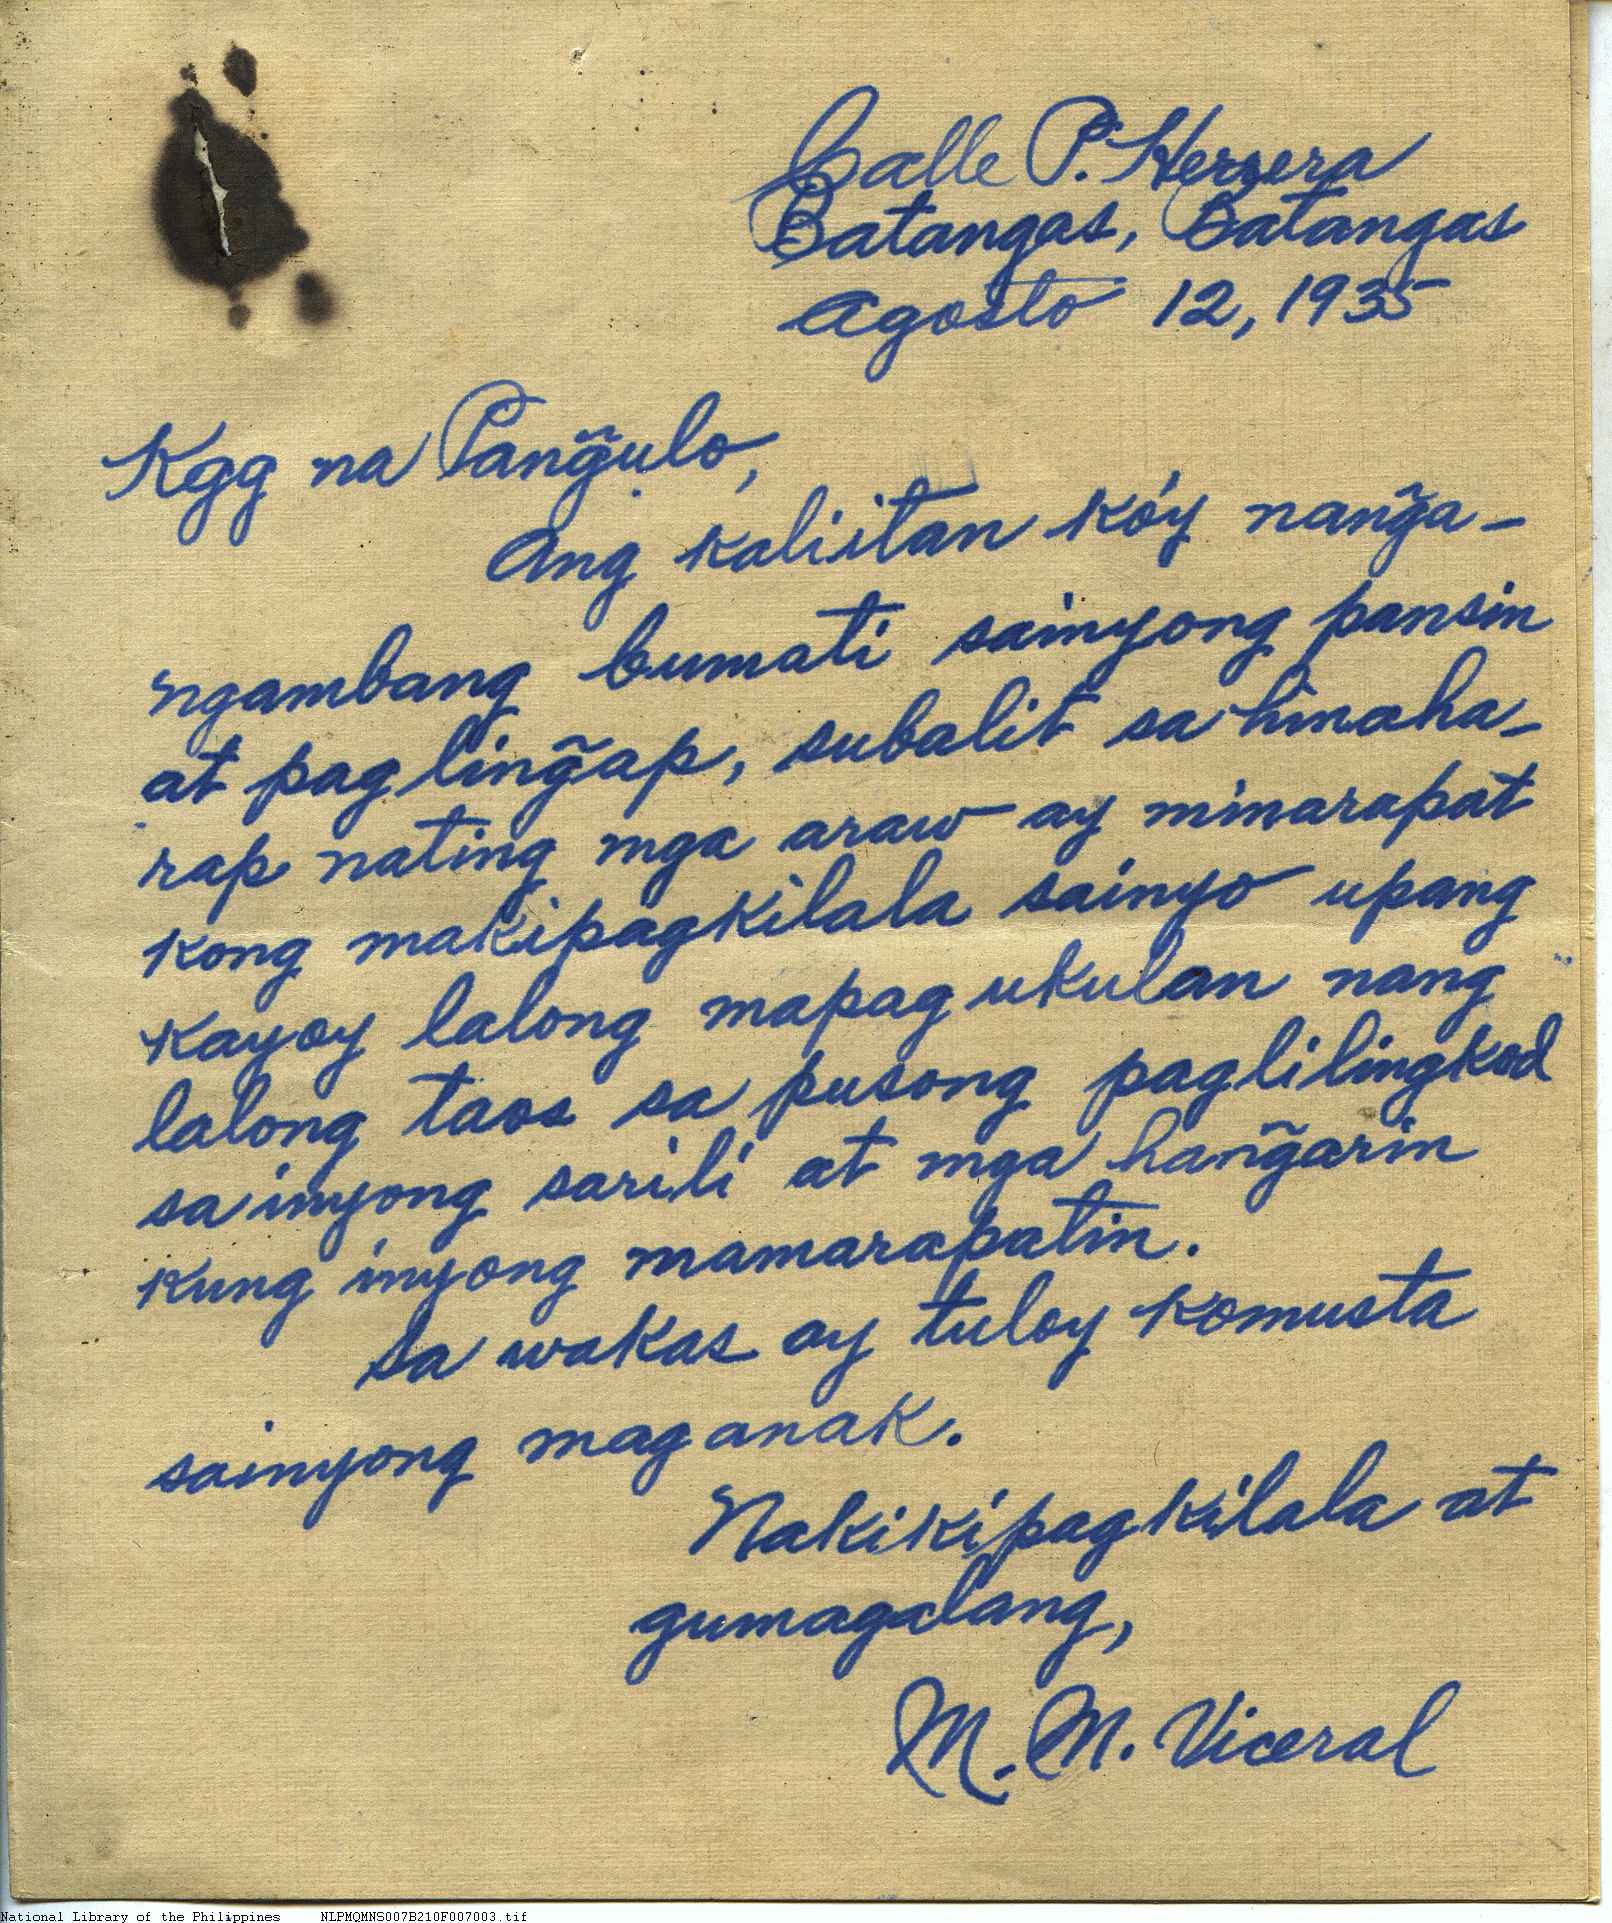 Calle P. Herrera
Batangas, Batangas
Agosto 12, 1935
Kgg na Pang̃ulo,
Ang kaliitan ko'y nang̃a-
ngambang bumati sainyong pansin
at pagling̃ap, subalit sa hinaha-
rap nating mga araw ay minarapat
kong makipagkilala sainyo upang
kayoy lalong mapagukulan nang
lalong taos sa pusong paglilingkod
sa inyong sarili at mga hang̃arin
kung inyong mamarapatin.
Sa wakas ay tuloy komusta
sainyong maganak.
Nakikipagkilala at
gumagalang,
M. M. Viceral
National Library of the Philippines NLPMQMNS007B210F007003.tif